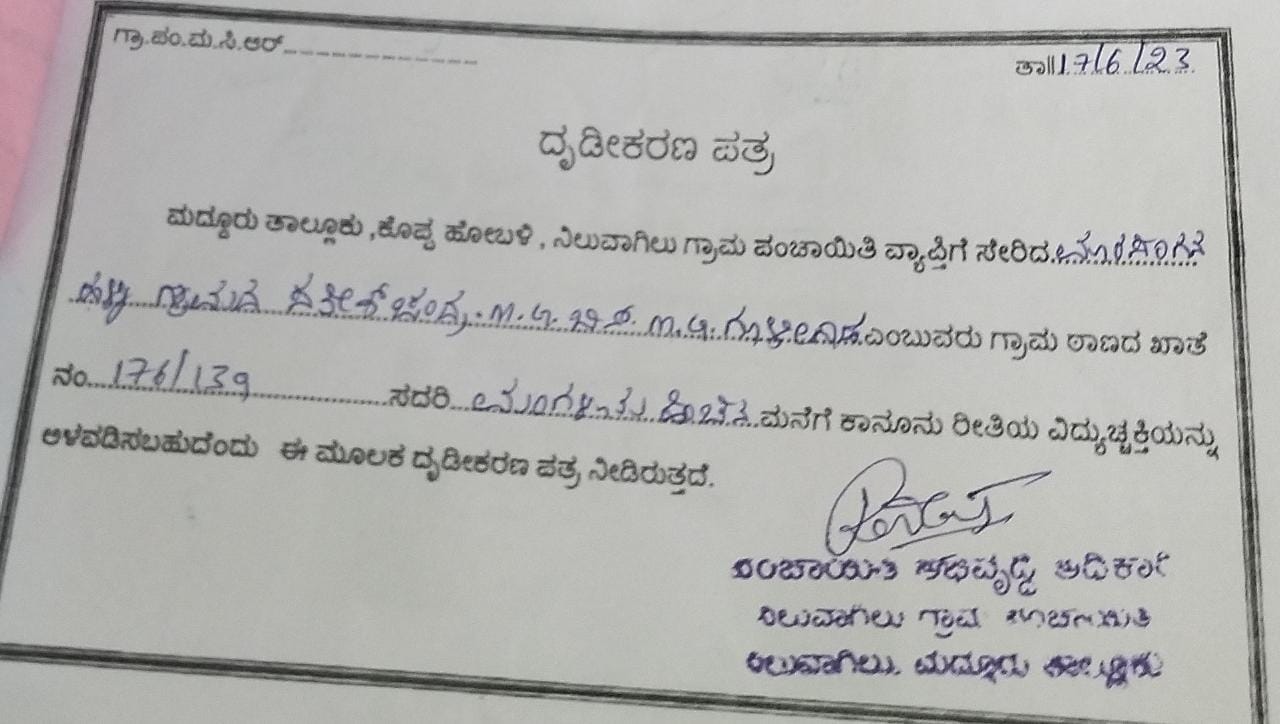 ಗ್ರಾ.ಪಂ.ಮ.ಸಿ.ಆರ್
ತಾ॥17/6/23
ದೃಡೀಕರಣ ಪತ್ರ
ಮದ್ದೂರು ತಾಲ್ಲೂಕು ,ಕೊಪ್ಪ ಹೋಬಳಿ , ನಿಲುವಾಗಿಲು ಗ್ರಾಮ ಪಂಚಾಯಿತಿ ವ್ಯಾಪ್ತಿಗೆ ಸೇರಿದ
ಗ್ರಾಮದ ಎಂಬುವರು ಗ್ರಾಮ ಠಾಣದ ಖಾತೆ
ನಂ 176/139 ಸದರಿ ಮನೆಗೆ ಕಾನೂನು ರೀತಿಯ ವಿದ್ಯುಚ್ಚಕ್ತಿಯನ್ನು
ಅಳವಡಿಸಬಹುದೆಂದು ಈ ಮೂಲಕ ದೃಡೀಕರಣ ಪತ್ರ ನೀಡಿರುತ್ತದೆ.
ಪಂಚಾಯಿತಿ ಅಭಿವೃದ್ಧಿ ಅಧಿಕಾರಿ
ನಿಲುವಾಗಿಲು ಗ್ರಾಮ ಪಂಚಾಯಿತಿ
ನಿಲುವಾಗಿಲು. ಮದ್ದೂರು ತಾಲ್ಲೂಕು